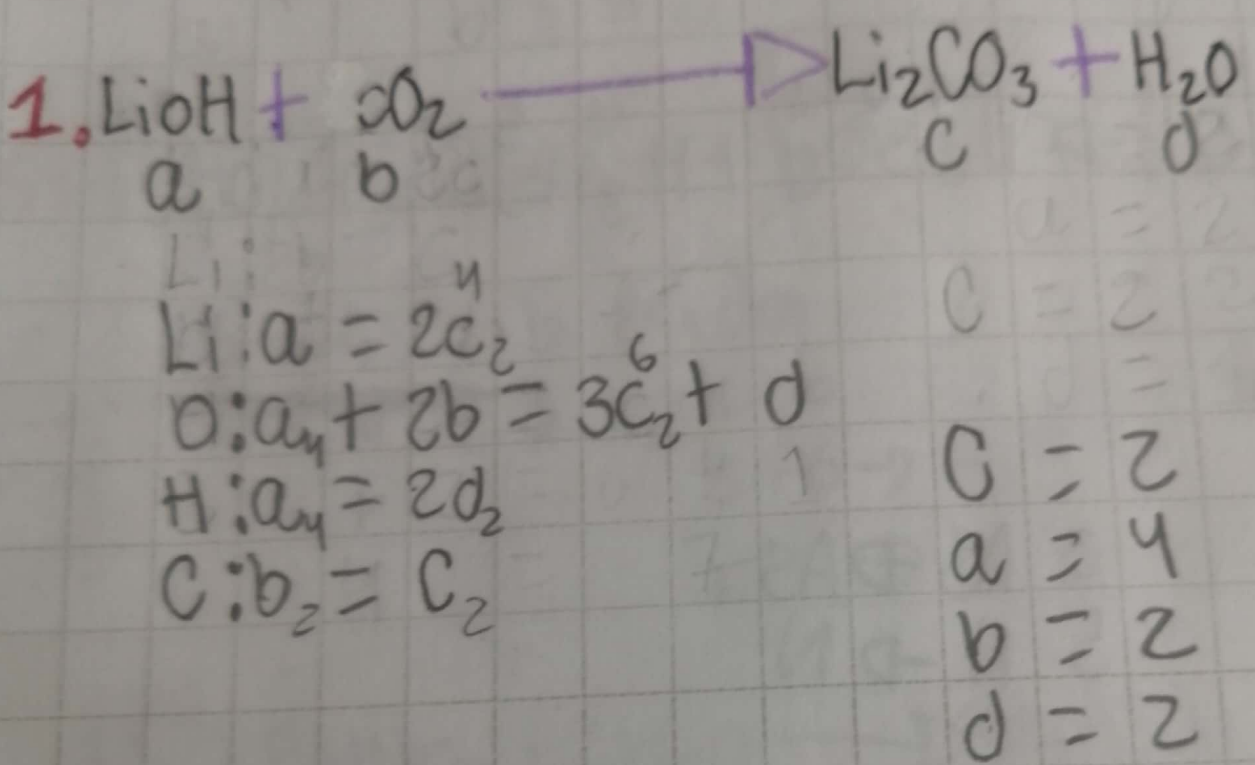 1. LiOH + CO₂ → Li₂CO₃ + H₂O
a b c d
Li:
Li: a = 2c₂ 4
O: a₄ + 2b = 3c₂ 6 + d
H: a₄ = 2d₂
C: b₂ = C₂
a = 2
C = 2
C = 2
a = 4
b = 2
d = 2